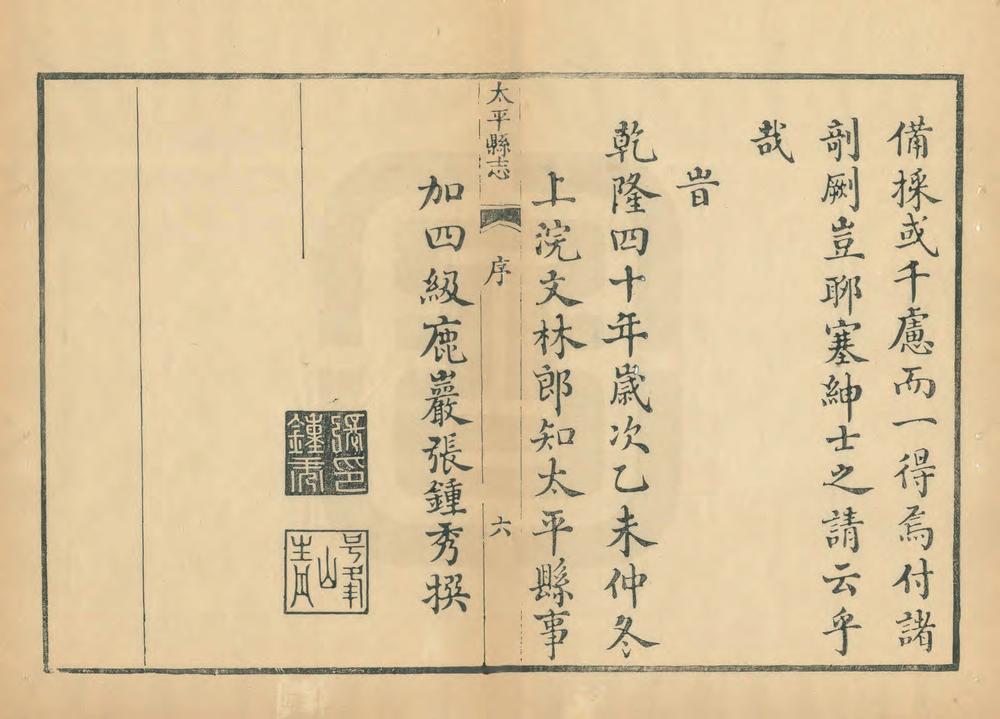 備採或千慮而一得焉付諸
剞劂豈聊塞紳士之請云乎
哉
旹
乾隆四十年歲次乙未仲冬
上浣文林郎知太平縣事
太平縣志
序
六
加四級鹿巖張鍾秀撰
張印
鍾秀
号峰
山